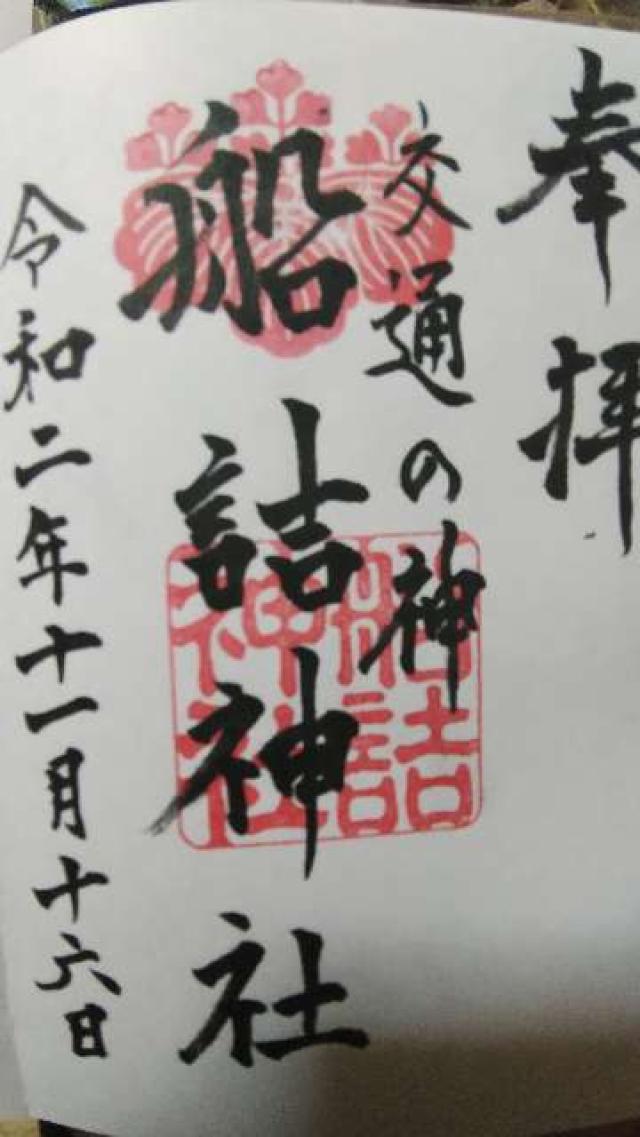 奉拝
交通の神
船詰神社
船詰神社
令和二年十一月十六日